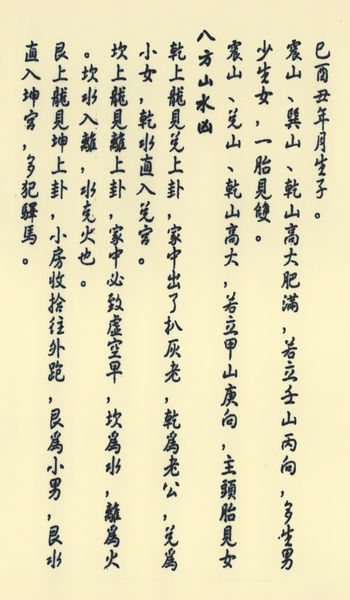 巳酉丑年月生子。
震山、巽山、乾山高大肥滿，若立壬山丙向，多生男
少生女，一胎見雙。
震山、兑山、乾山高大，若立甲山庚向，主頭胎見女
八方山水凶
乾上龍見兑上卦，家中出了扒灰老，乾為老公，兑為
小女，乾水直入兑宫。
坎上龍見離上卦，家中必致虛空早，坎為水，離為火
。坎水入離，水克火也。
艮上龍見坤上卦，小房收捨往外跑，艮為小男，艮水
直入坤宫，多犯驛馬。